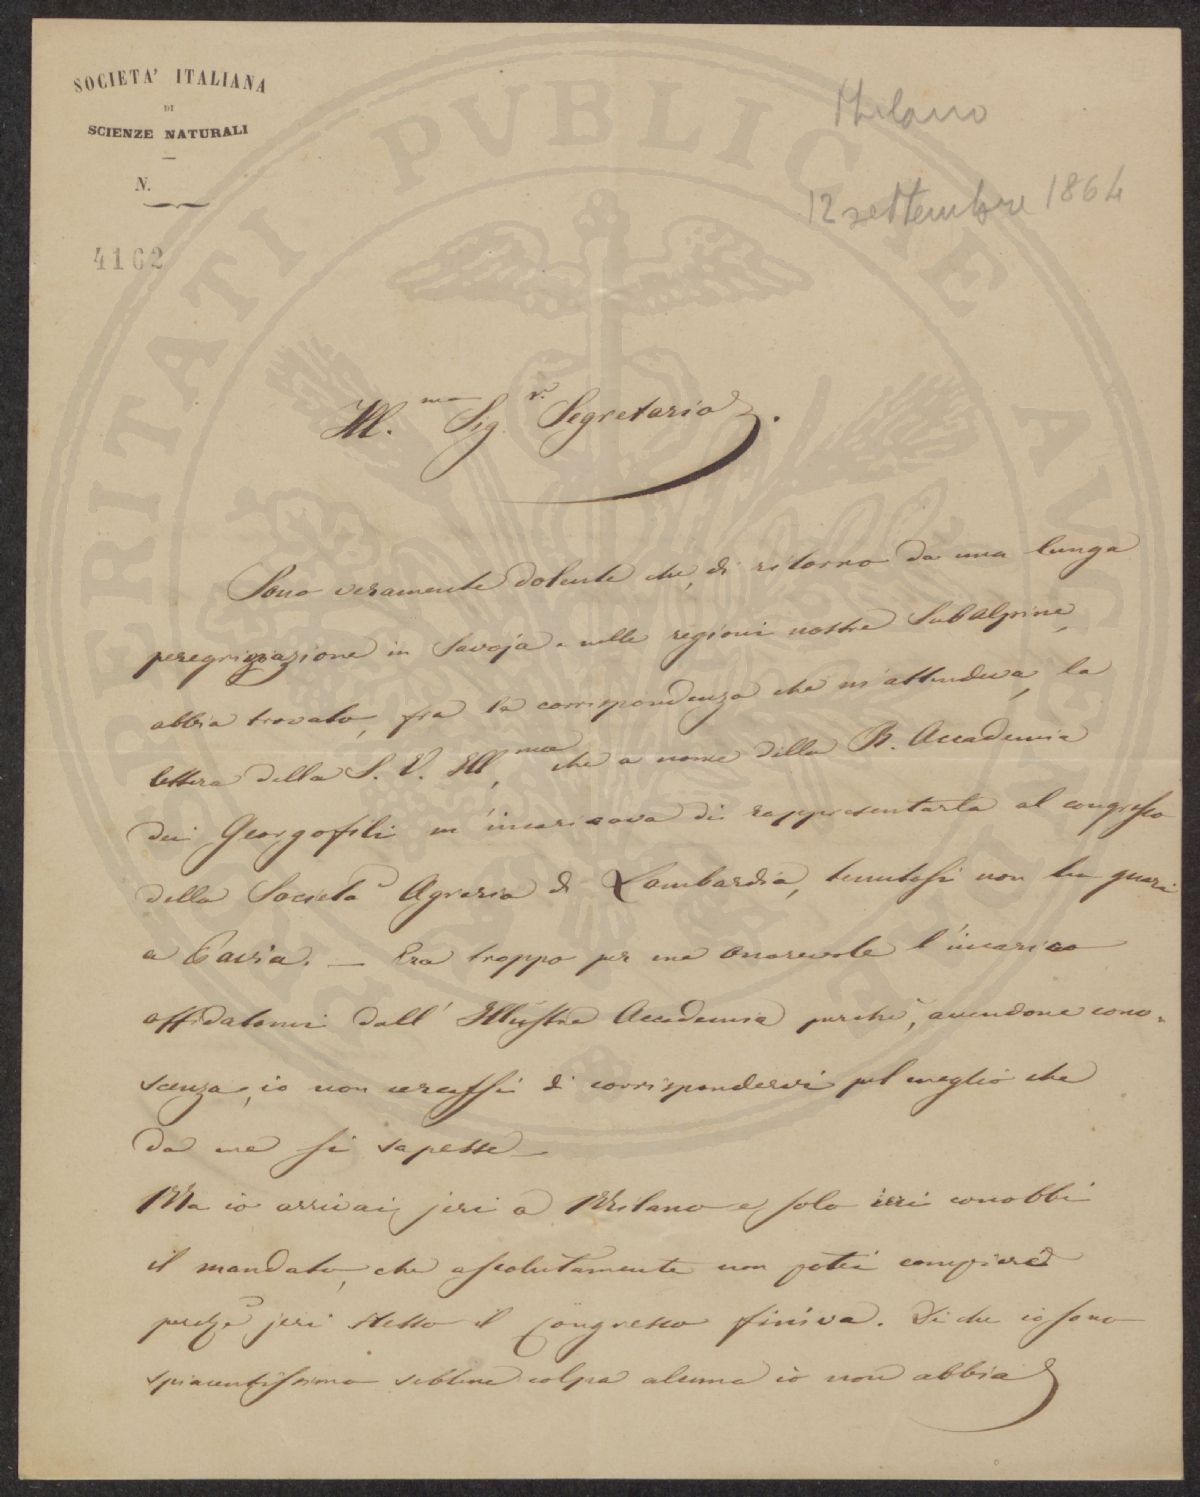 SOCIETA' ITALIANA
DI
SCIENZE NATURALI
N.
4162
Milano
12 settembre 1864
Ill.mo Sig.r Segretario.
Sono veramente dolente che, di ritorno da una lunga
peregrinazione in Savoja e nelle regioni nostre Subalpine,
abbia trovato, fra la corrispondenza che m'attendeva, la
lettera della S. V. Ill.ma, che a nome della R. Accademia
dei Georgofili m'incaricava di rappresentarla al congresso
della Società Agraria di Lombardia, tenutosi non ha guari
a Pavia. — Era troppo per me onorevole l'incarico
affidatomi dall'Illustre Accademia perchè, avendone cono-
scenza, io non cercassi di corrispondervi pel meglio che
da me si sapesse —
Ma io arrivai jeri a Milano e solo ieri conobbi
il mandato, che assolutamente non potei compiere
perchè jeri stesso il Congresso finiva. Di che io sono
spiacentissimo sebbene colpa alcuna io non abbia
PVBLICAE
PROSPERITATI
AVGENDAE